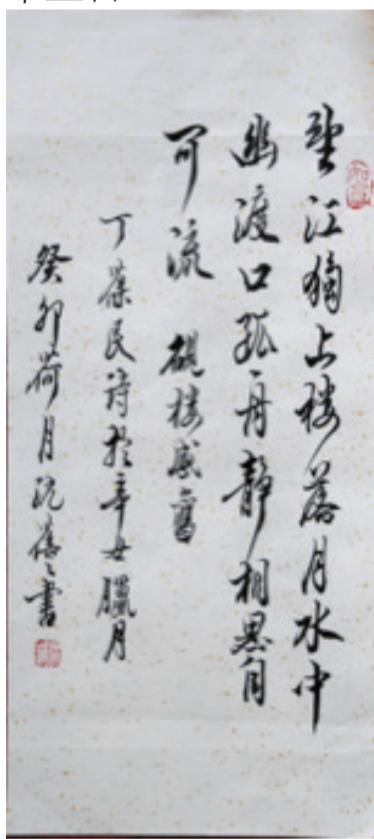 望江獨上楼落月水中
幽渡口孤舟静相思自
可流 楼感舊
丁葆民诗於辛丑臘月
癸卯荷月書